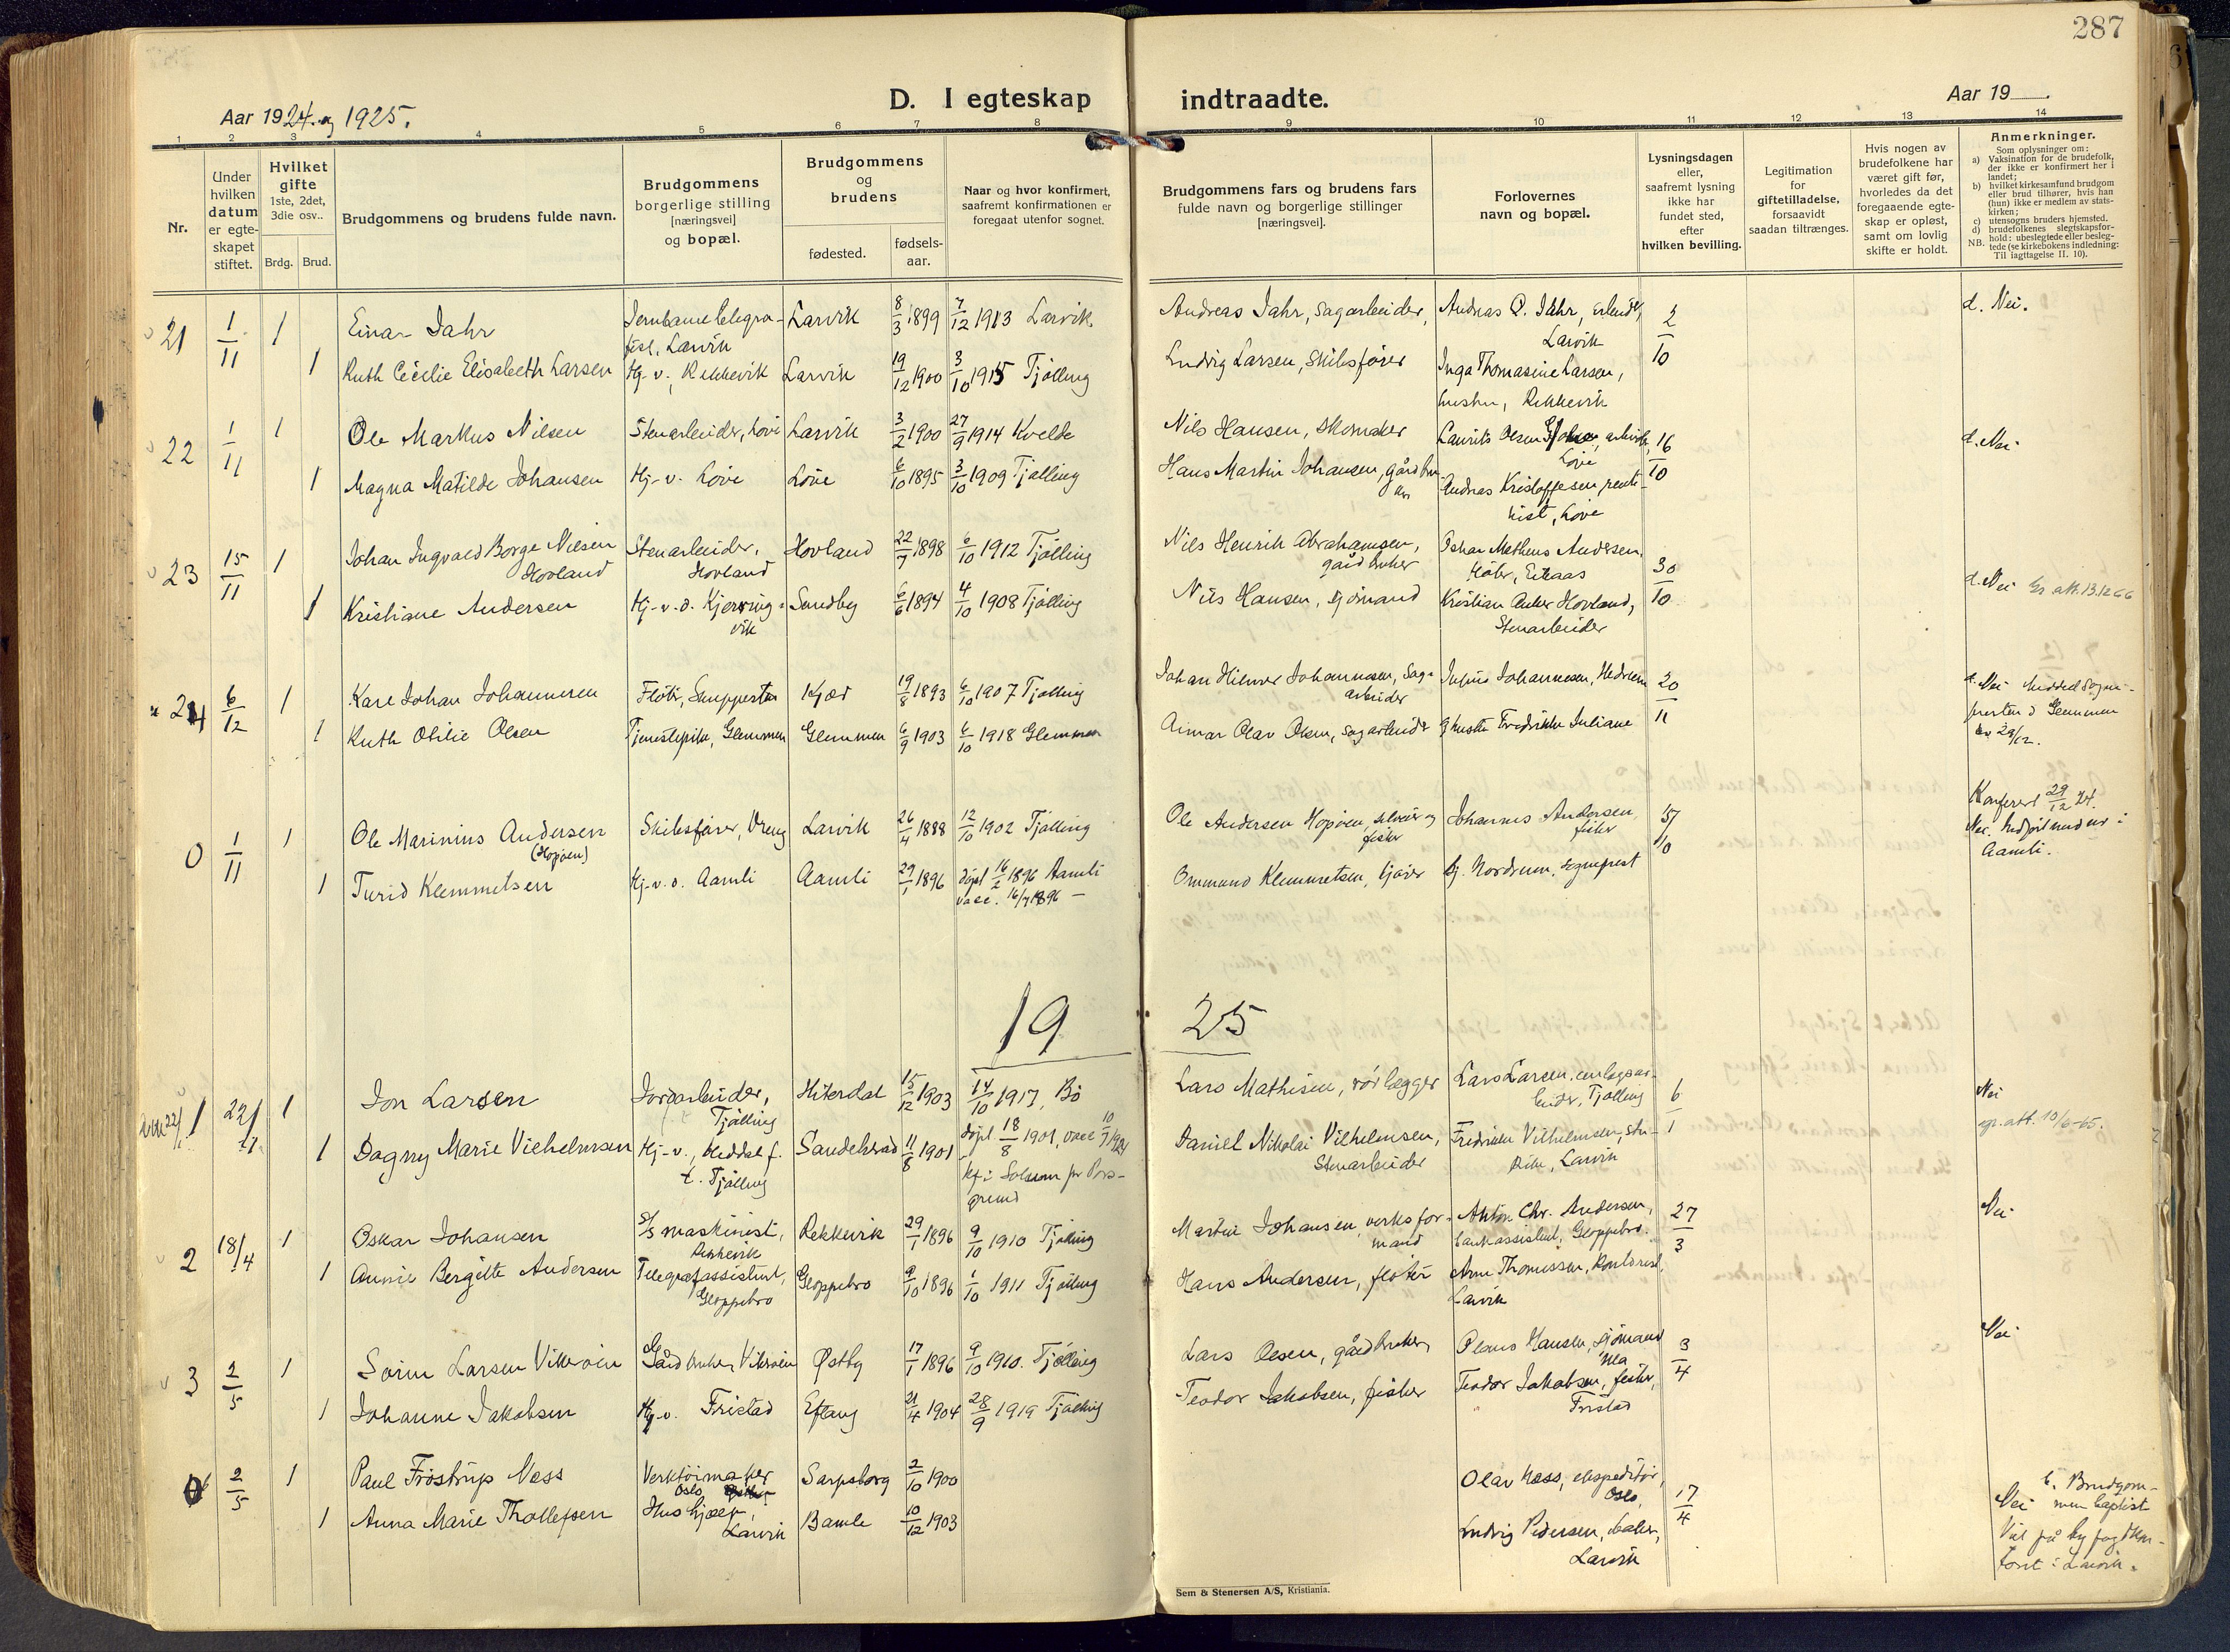 287
Aar 1924 og 1925.
D. I egteskap indtraadte.
Aar 19
1 2 3 4 5 6 7 8 9 10 11 12 13 14
Nr.
Under hvilken datum er egteskapet stiftet.
Hvilket gifte 1ste, 2det, 3die osv..
Brdg. Brud.
Brudgommens og brudens fulde navn.
Brudgommens borgerlige stilling [næringsvei] og bopæl.
Brudgommens og brudens
fødested.
fødsels-aar.
Naar og hvor konfirmert, saafremt konfirmationen er foregaat utenfor sognet.
Brudgommens fars og brudens fars fulde navn og borgerlige stillinger [næringsvei].
Forlovernes navn og bopæl.
Lysningsdagen eller, saafremt lysning ikke har fundet sted, efter hvilken bevilling.
Legitimation for giftetilladelse, forsaavidt saadan tiltrænges.
Hvis nogen av brudefolkene har været gift før, hvorledes da det foregaaende egteskap er opløst, samt om lovlig skifte er holdt.
Anmerkninger.
Som oplysninger om:
a) Vaksination for de brudefolk, der ikke er konfirmert her i landet;
b) hvilket kirkesamfund brudgom eller brud tilhører, hvis han (hun) ikke er medlem av statskirken;
c) utensogns bruders hjemsted.
d) brudefolkenes slegtskapsforhold: ubeslegtede eller beslegtede (se kirkebokens indledning:
NB. Til iagttagelse II. 10).
21 1/11 1 Einar Jahr Jernbanetelegrafist, Larvik Larvik 8/3 1899 7/12 1913 Larvik Andreas Jahr, sagarbeider, Andreas O. Jahr, arbeider, Larvik 2/10 d. Nei.
1 Ruth Cecilie Elisabeth Larsen Hj-v., Rekkevik Larvik 19/12 1900 3/10 1915 Tjølling Ludvig Larsen, skibsfører Inga Thomasine Larsen, hustru, Rekkevik
22 1/11 1 Ole Markus Nilsen Stenarbeider, Løve Larvik 3/2 1900 27/9 1914 Kvelde Nils Hansen, skomaker Laurits Olsen arbeider, Løve 16/10 d. Nei
1 Magna Matilde Johansen Hj-v. Løve Løve 6/10 1895 3/10 1909 Tjølling Hans Martin Johansen, gårdbruker Andreas Kristoffersen, rentenist, Løve
23 15/11 1 Johan Ingvald Borge Nilsen Hovland Stenarbeider, Hovland Hovland 22/7 1898 6/10 1912 Tjølling Nils Henrik Abrahamsen, gårdbruker Oskar Matheus Andersen, Eikaas 30/10 d. Nei att. 13.12 66
1 Kristiane Andersen Hj-v.d. Kjerringvik Sundby 6/6 1894 4/10 1908 Tjølling Nils Hansen, sjømand Kristian Anker Hovland, Stenarbeider
24 6/12 1 Karl Johan Johannesen Fløter, 19/8 1893 6/10 1907 Tjølling Johan Hilmer Johannesen, Sagarbeider Julius Johannesen, Hedrum 20/11 d. Nei Meddelt Sognepresten i Glemmen 29/12.
1 Ruth Otilie Olsen Tjenestepike, Glemmen Glemmen 6/9 1903 6/10 1918 Glemmen Olav Olsen, sagarbeider Fredrikke Juliane
0 1/11 1 Ole Marinius Andersen (Hopøen) Skibsfører, Vreng Larvik 26/4 1888 12/10 1902 Tjølling Ole Andersen Hopøen, selveier og fisker Johannes Andersen, fisker Konferert 29/12 24. Nei. i Aamli.
1 Turid Klemmetsen Hj-v.d. Aamli Aamli 29/1 1896 døpt 16/2 1896 Aamli vacc. 16/9 1896 Ommund Klemmetsen, Nordrum, sogneprest
1925
1 22/1 1 Jon Larsen Jordarbeider, Tjølling Hiterdal 15/12 1903 14/10 1917, Bø Lars Mathisen, rørlægger Lars Larsen, anlægsarbeider, Tjølling 6/1 Nei att. 10/6-65.
1 Dagny Marie Vilhelmsen Hj-v., Heddal f. t. Tjølling Sandeherad 11/8 1901 døpt 18/8 1901, vacc 10/7 1921 kf. i Solum pr Porsgrund Daniel Nikolai Vilhelmsen, Stenarbeider Fredrikke Vilhelmsen, Larvik
2 18/4 1 Oskar Johansen S/s maskinist, Rekkevik Rekkevik 29/1 1896 9/10 1910 Tjølling Martin Johansen, verksformand Anton Chr. Andersen, bankassistent, Gloppebro. 27/3 Nei
1 Annie Bergitte Andersen Telegrafassistent, Gloppebro Gloppebro 9/10 1896 1/10 1911 Tjølling Hans Andersen, fløter Arne Thomassen, kontorist, Larvik
3 2/5 1 Sørine Larsen Viksøien Gårdbruker, Østby 17/1 1896 9/10 1910. Tjølling Lars Olsen, gårdbruker, Olaus Hansen, sjømand Ula 3/4 Nei
1 Johanne Jakobsen Hj-v. Fristad Eftang 21/4 1904 28/9 1919 Tjølling Teodor Jakobsen, fisker Teodor Jakobsen, fisker, Fristad
0 2/5 1 Paul Frøstrup Næss Verktøimaker Oslo Sarpsborg 2/10 1900 Olav Næss, ekspeditør, Oslo, 17/4 Nei b. Brudgommen baptist Viet på byfogdkontoret i Larvik.
1 Anna Marie Thollefsen Hushjælp, Larvik Bamle 10/12 1903 Ludvig Pedersen, baker, Larvik
Sem & Stenersen A/S, Kristiania.